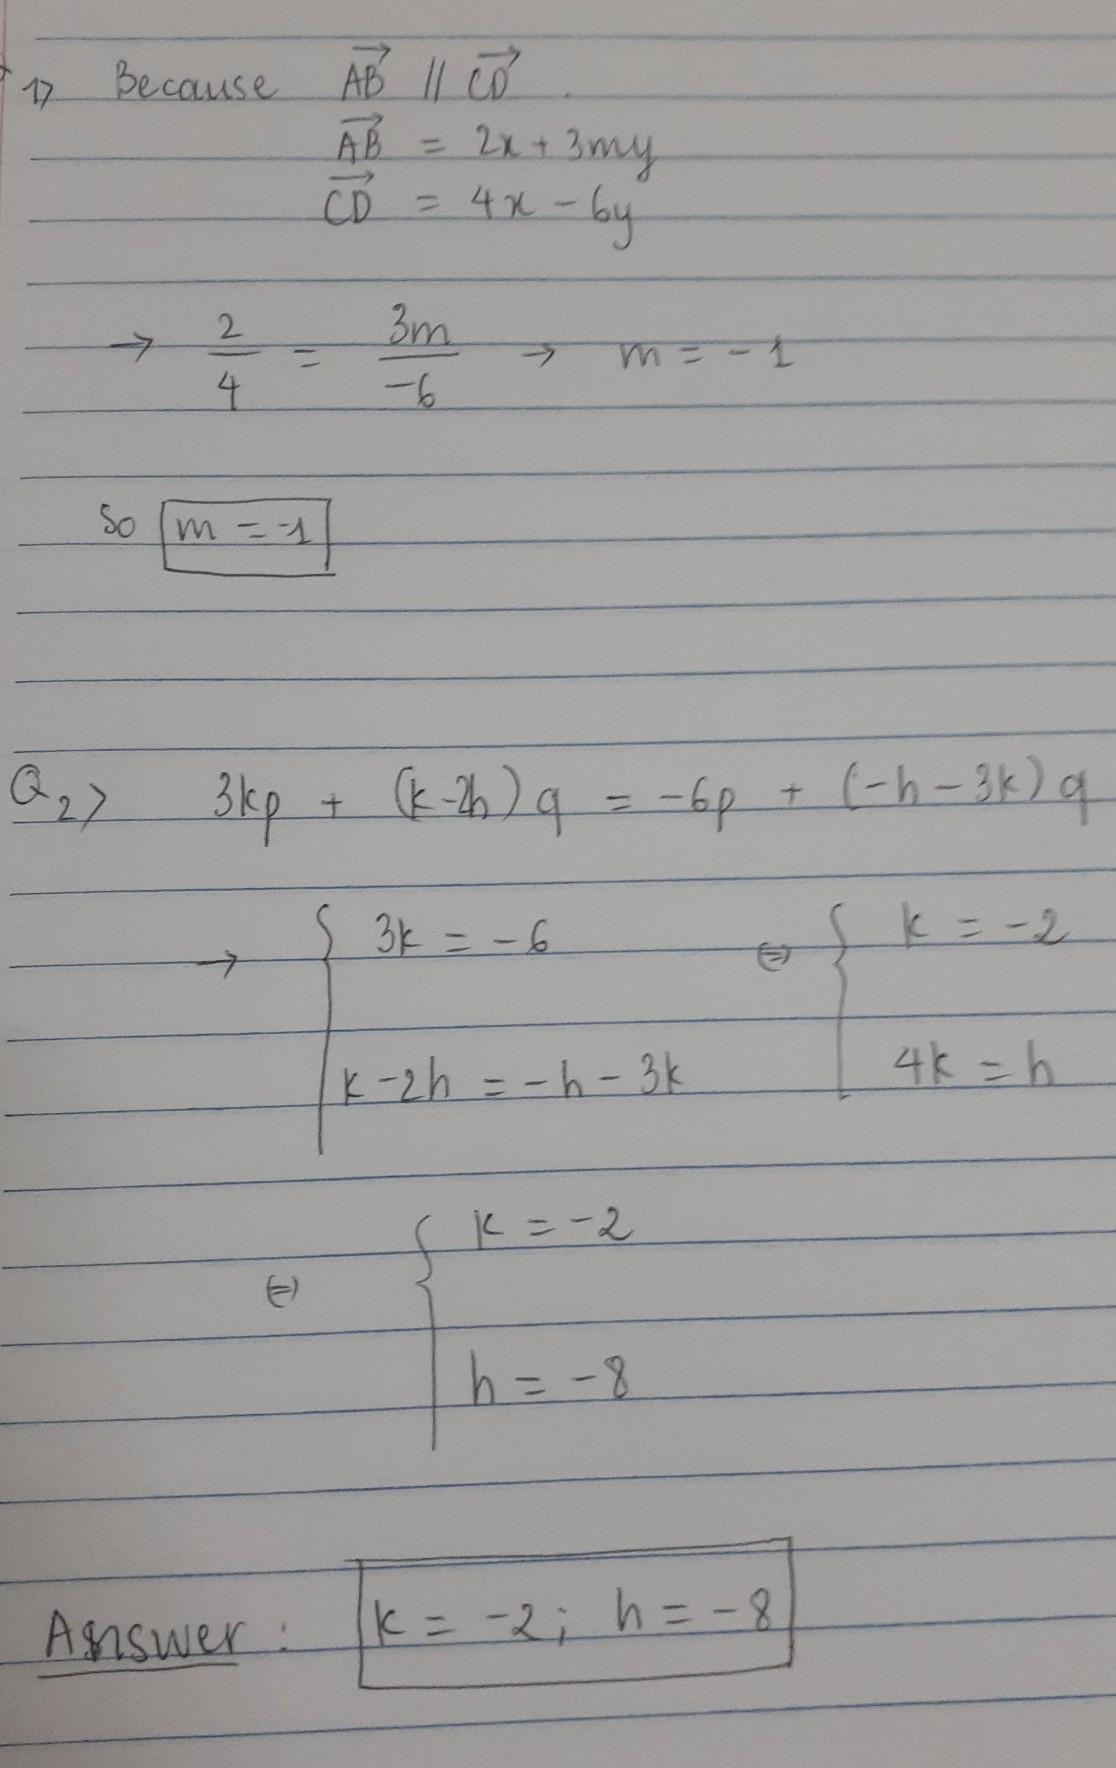 1> Because AB⃗ // CD⃗.
AB⃗ = 2x + 3my
CD⃗ = 4x - 6y
→ 2/4 = 3m/-6 → m = -1
So m = -1
Q2> 3kp + (k-2h)q = -6p + (-h-3k)q
→ { 3k = -6 ⇔ { k = -2
k-2h = -h-3k 4k = h
⇔ { k = -2
h = -8
Answer: k = -2; h = -8